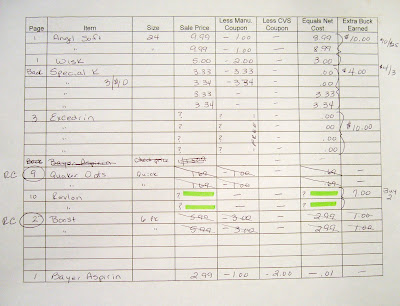 Page Item Size Sale Price Less Manu. Coupon Less CVS Coupon Equals Net Cost Extra Buck Earned
1 Angel Soft 24 9.99 - 1.00 — 8.99 $10.00
" 9.99 - 1.00 — 8.99
1 Wisk 5.00 - 2.00 — 3.00
Back Special K 3.33 - 3.33 — .00 $4.00
" 3/$10 3.34 - 3.34 — .00
" 3.33 — 3.33
" 3.34 — 3.34
3 Excedrin ? ? — .00 $10.00
" ? ? — .00
" ? ? — .00
" ? ? — .00
Back Bayer Aspirin —
RC 9 Quaker Oats Quick 1.69 - 1.00 —
" " 1.69 - 1.00 —
10 Revlon ? — ? 7.00 Buy 2
" ? — ? —
RC 2 Boost 6 Pk 5.99 - 3.00 — 2.99 1.00
" 5.99 - 3.00 — 2.99 1.00
1 Bayer Aspirin 2.99 - 1.00 - 2.00 - .01 —